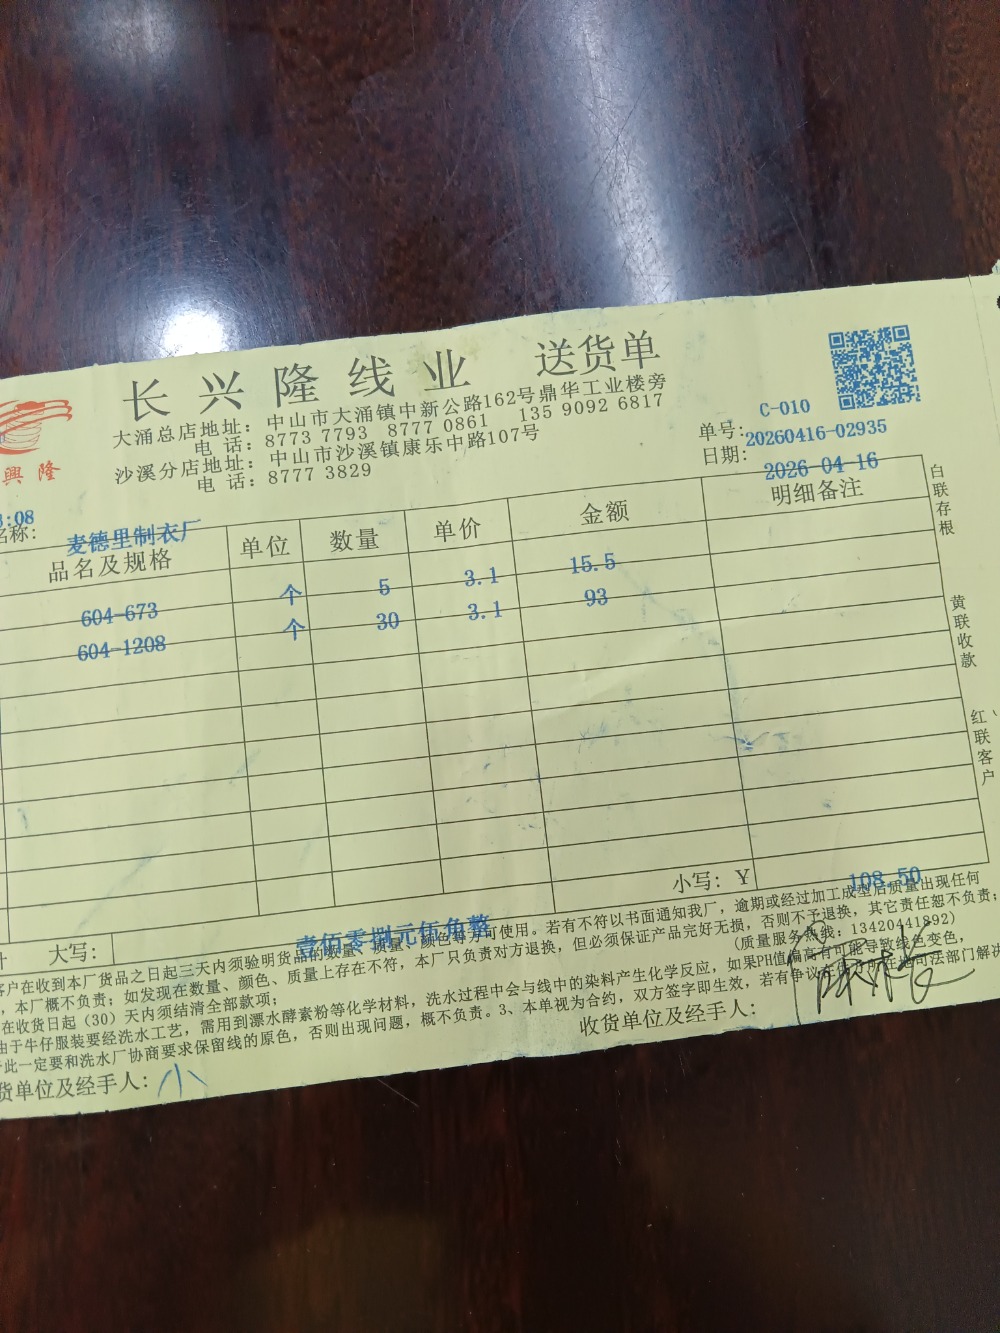 長 兴 隆 线 业 送货单
大涌总店地址：中山市大涌镇中新公路162号鼎华工业楼旁
电 话：8773 7793 8777 0861 135 9092 6817
沙溪分店地址：中山市沙溪镇康乐中路107号
电 话：8777 3829
興 隆
C-010
单号:20260416-02935
日期: 2026-04-16
:08
名称: 麦德里制衣厂
品名及规格 单位 数量 单价 金额 明细备注
604-673 个 5 3.1 15.5
604-1208 个 30 3.1 93
小写：¥ 108.50
大写： 壹佰零捌元伍角整
客户在收到本厂货品之日起三天内须验明货品的数量、质量、颜色等方可使用。若有不符以书面通知我厂，逾期或经过加工成型后质量出现任何
，本厂概不负责；如发现在数量、颜色、质量上存在不符，本厂只负责对方退换，但必须保证产品完好无损，否则不予退换，其它责任恕不负责；
在收货日起（30）天内须结清全部款项； (质量服务热线：13420441892)
由于牛仔服装要经洗水工艺，需用到漂水酵素粉等化学材料，洗水过程中会与线中的染料产生化学反应，如果PH值偏高有可能导致线色变色，
此一定要和洗水厂协商要求保留线的原色，否则出现问题，概不负责。3、本单视为合约，双方签字即生效，若有争议在供方所在地司法部门解决
货单位及经手人: 小
收货单位及经手人:
白联存根
黄联收款
红联客户